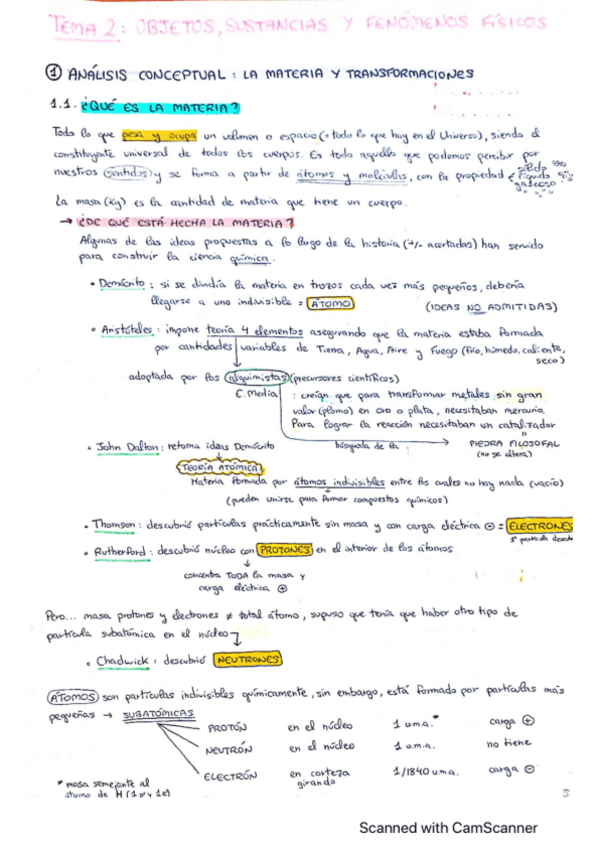 TEMA 2: OBJETOS, SUSTANCIAS Y FENÓMENOS FÍSICOS
① ANÁLISIS CONCEPTUAL: LA MATERIA Y TRANSFORMACIONES
1.1. ¿QUÉ ES LA MATERIA?
Todo lo que pesa y ocupa un volumen o espacio (= todo lo que hay en el Universo), siendo el
constituyente universal de todos los cuerpos. Es todo aquello que podemos percibir por
nuestros sentidos y se forma a partir de átomos y moléculas, con la propiedad sólido líquido gaseoso
La masa (Kg) es la cantidad de materia que tiene un cuerpo.
→ ¿DE QUÉ ESTÁ HECHA LA MATERIA?
Algunas de las ideas propuestas a lo largo de la historia (+/- acertadas) han servido
para construir la ciencia química.
• Demócrito: si se dividía la materia en trozos cada vez más pequeños, debería
llegarse a uno indivisible = ÁTOMO (IDEAS NO ADMITIDAS)
• Aristóteles: impone teoría 4 elementos asegurando que la materia estaba formada
por cantidades variables de Tierra, Agua, Aire y Fuego (frío, húmedo, caliente,
seco)
adoptada por los alquimistas (precursores científicos)
E. Media : creían que para transformar metales sin gran
valor (plomo) en oro o plata, necesitaban mercurio.
Para lograr la reacción necesitaban un catalizador
• John Dalton: retoma ideas Demócrito búsqueda de la → PIEDRA FILOSOFAL
(no se altera)
TEORÍA ATÓMICA
Materia formada por átomos indivisibles entre los cuales no hay nada (vacío)
(pueden unirse para formar compuestos químicos)
• Thomson: descubrió partículas prácticamente sin masa y con carga eléctrica ⊖ = ELECTRONES
1ª partícula
• Rutherford: descubrió núcleo con PROTONES en el interior de los átomos
↓
concentra TODA la masa y
carga eléctrica ⊕
Pero... masa protones y electrones ≠ total átomo, supuso que tenía que haber otro tipo de
partícula subatómica en el núcleo
• Chadwick: descubrió NEUTRONES
ÁTOMOS son partículas indivisibles químicamente, sin embargo, está formado por partículas más
pequeñas → SUBATÓMICAS
PROTÓN en el núcleo 1 u.m.a.* carga ⊕
NEUTRÓN en el núcleo 1 u.m.a. no tiene
ELECTRÓN en corteza girando 1/1840 u.m.a. carga ⊖
* masa semejante al
átomo de H (1 p⁺ y 1e)
5
Scanned with CamScanner